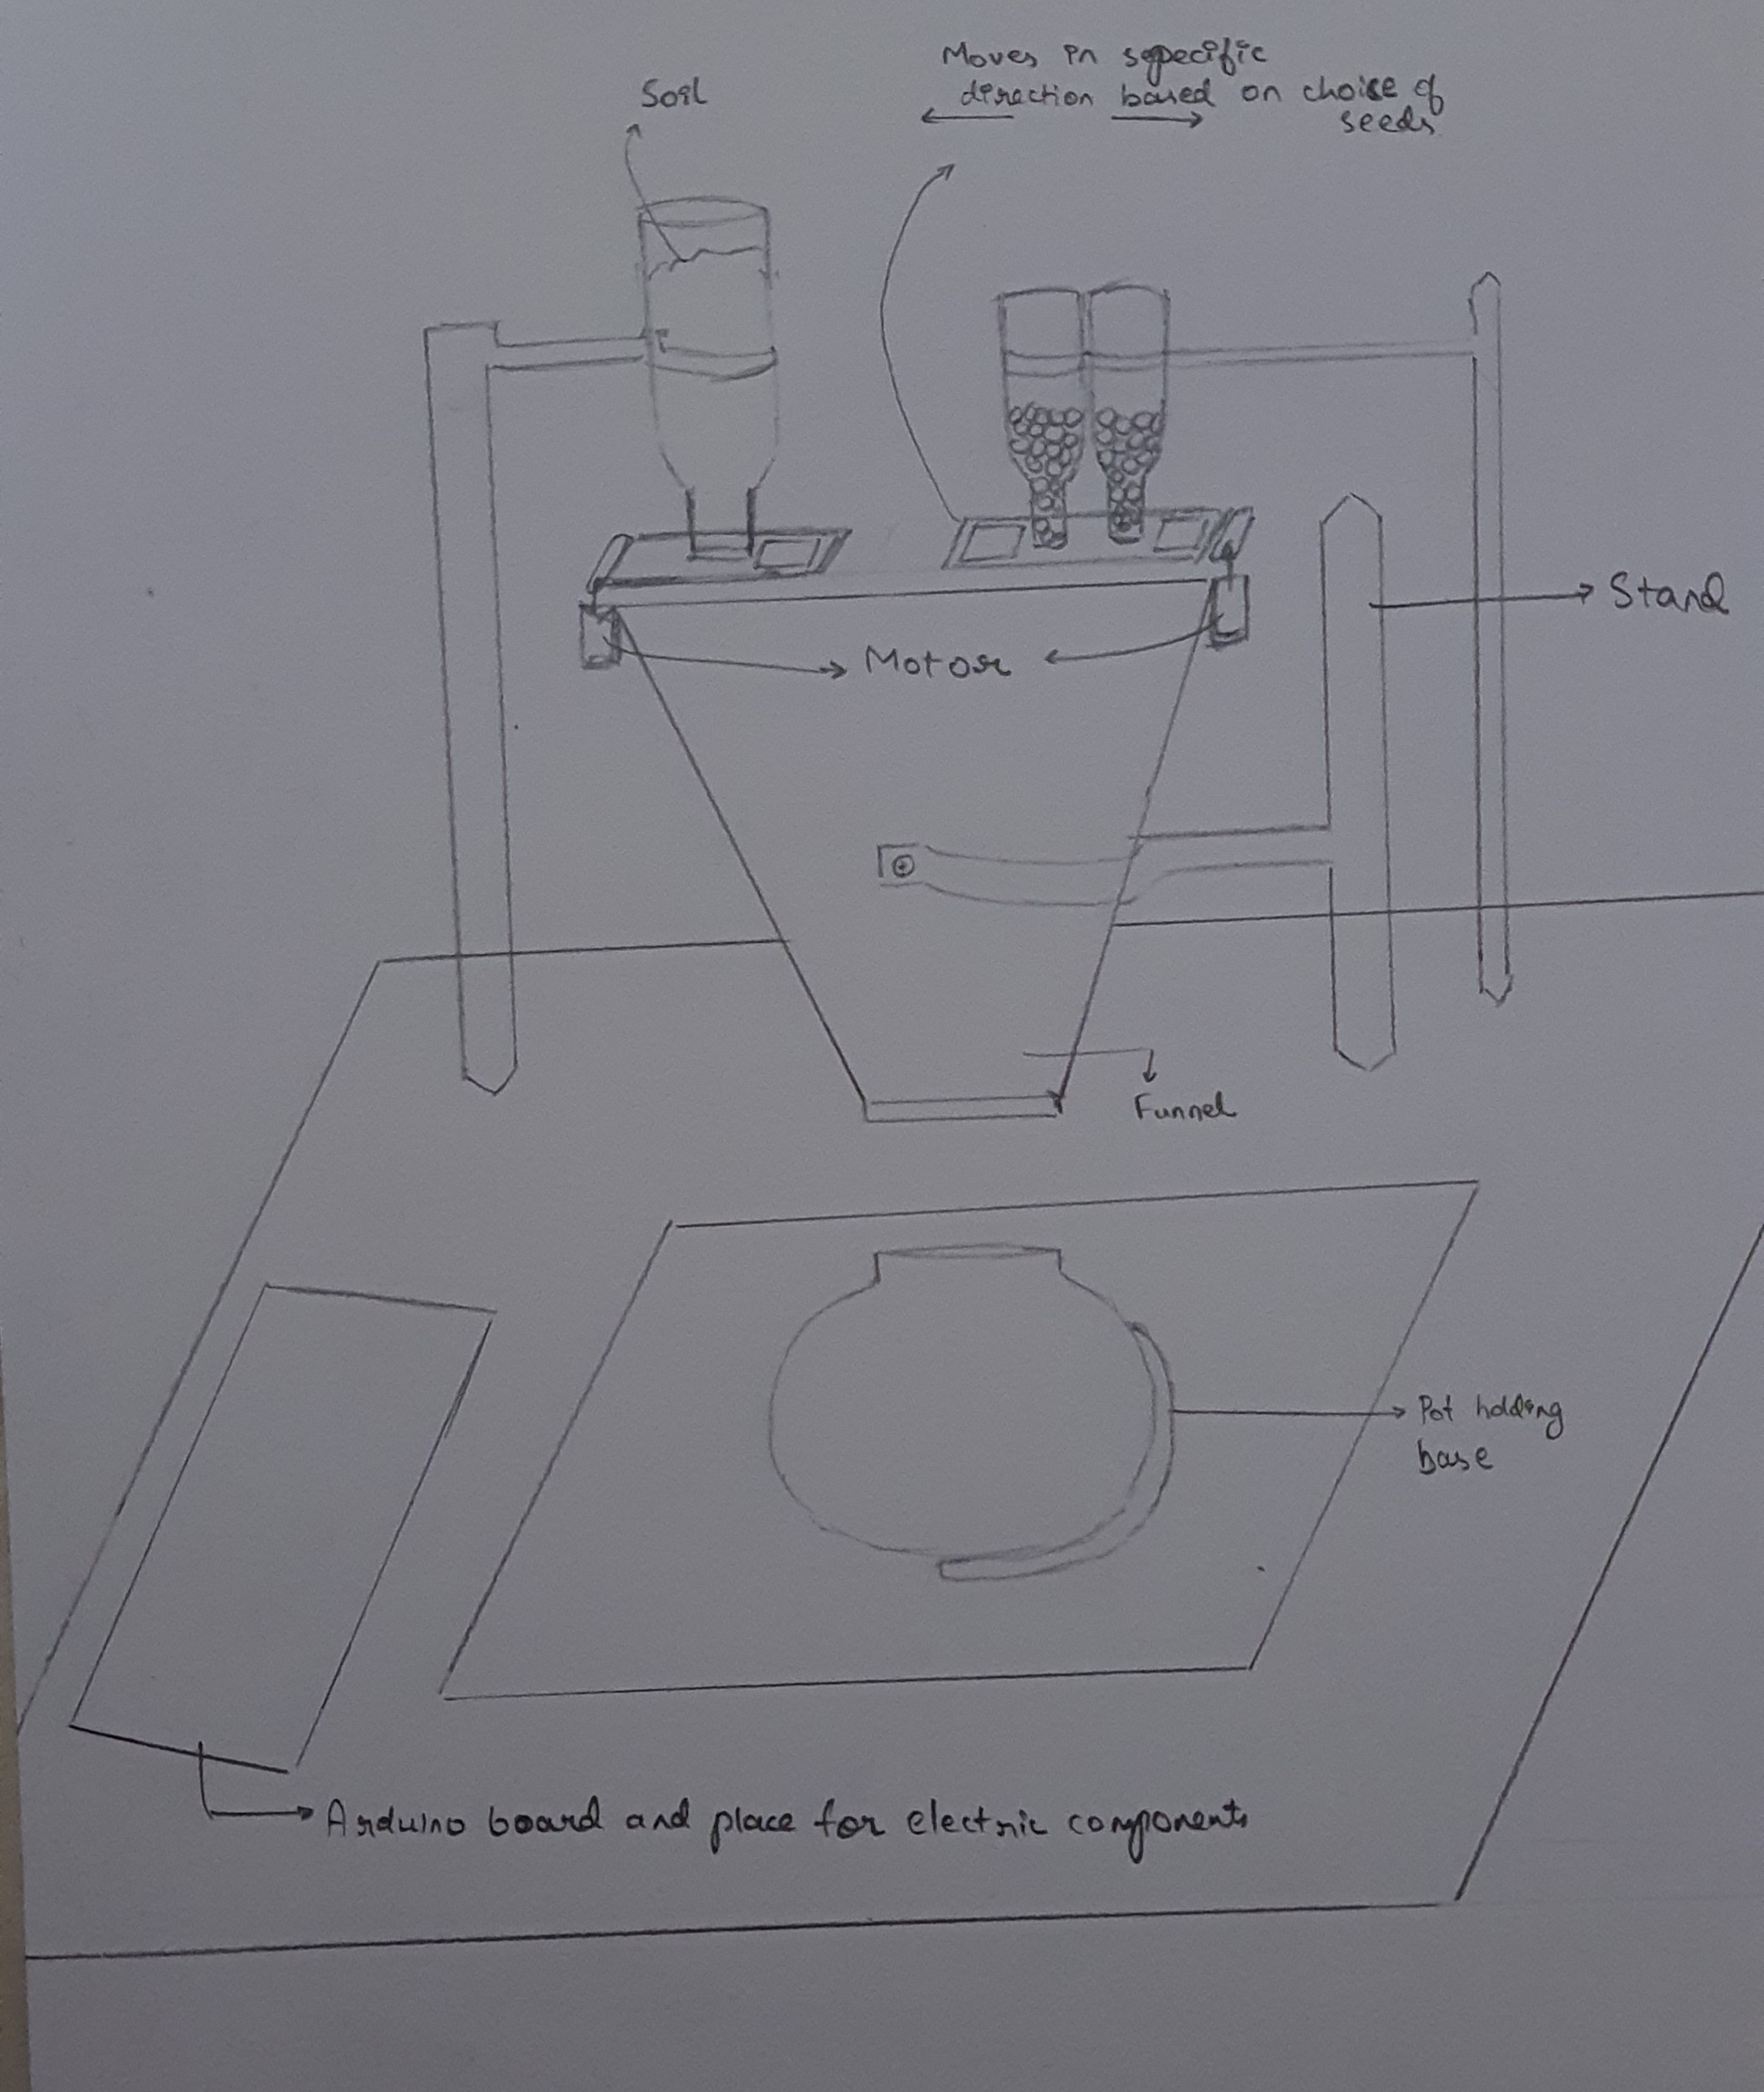 Moves in sepecific
direction based on choise of
seeds
Soil
Stand
Motor
Funnel
Pot holding
base
Arduino board and place for electric components